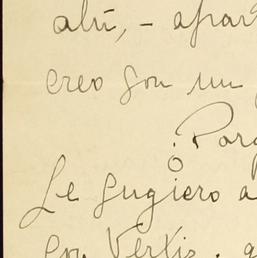 ahí, - apar
creo son un
Porq
Le sugiero a
con Vertiz, q